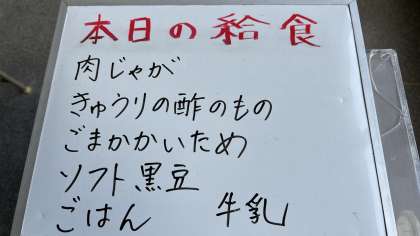 本日の給食
肉じゃが
きゅうりの酢のもの
ごまかかいため
ソフト黒豆
ごはん 牛乳